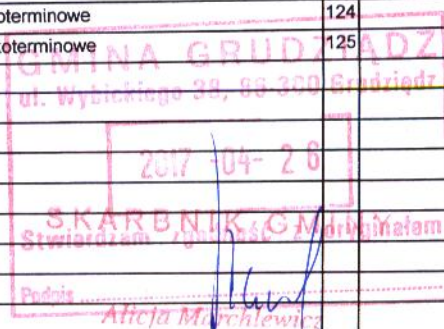 oterminowe 124
oterminowe 125
GMINA GRUDZIĄDZ
ul. Wybickiego 38, 86-300 Grudziądz
2017 -04- 26
SKARBNIK GMINY
Stwierdzam zgodność z oryginałem
Podpis
Alicja Marchlewicz